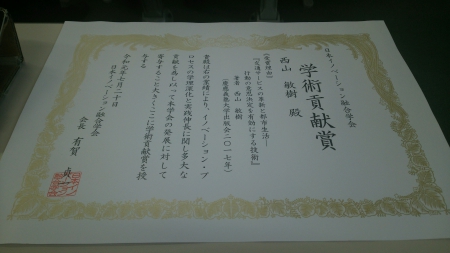 日本イノベーション融合学会
学術貢献賞
西山 敏樹 殿
《受賞理由》
『交通サービスの革新と都市生活―
行動の意思決定を有効にする技術』
著者 西山 敏樹
(慶應義塾大学出版会二〇一七年)
貴殿は右の業績により、イノベーション・プ
ロセスの学理深化と実践伸長に関し多大な
貢献を為し以って本学会の発展に対して
寄与すること大きくここに学術貢献賞を授
与する
令和元年七月二十日
日本イノベーション融合学会
会長 有賀 貞一